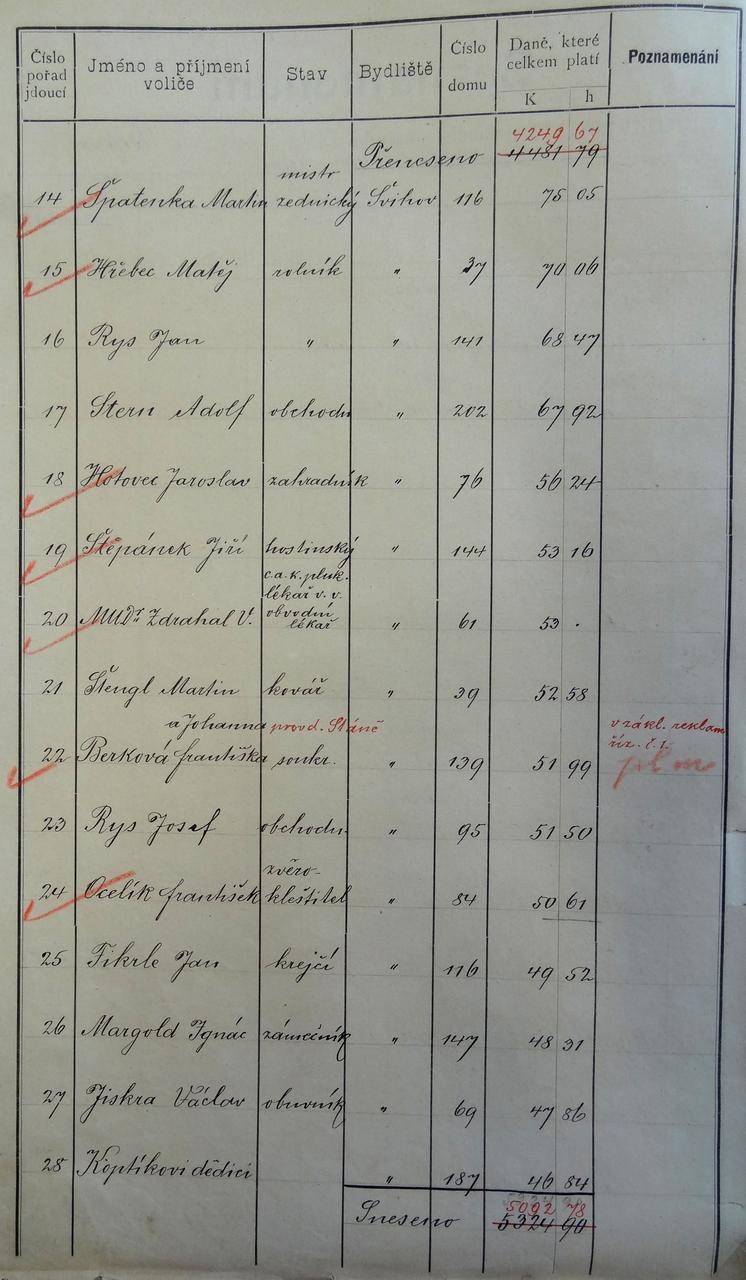 Číslo pořad jdoucí Jméno a příjmení voliče Stav Bydliště Číslo domu Daně, které celkem platí K h Poznamenání
4249 67
Přeneseno 4481 79
mistr
14 Špatenka Martin zednický Švihov 116 75 05
15 Hřebec Matěj rolník " 37 70 06
16 Rys Jan " " 141 68 47
17 Stern Adolf obchodn " 202 67 92
18 Hotovec Jaroslav zahradník " 76 56 24
19 Štěpánek Jiří hostinský " 144 53 16
c. a. k. pluk.
lékař v. v.
20 MUDr Zdrahal V. obvodní lékař " 61 53 .
21 Štengl Martin kovář " 39 52 58
a Johanna provd. Stáně v zákl. reklam
říz. č. 1.
22 Berková Františka soukr. " 139 51 99
23 Rys Josef obchodn. " 95 51 50
zvěro-
24 Ocelík František kleštitel " 84 50 61
25 Fikrle Jan krejčí " 116 49 52
26 Margold Ignác zámečník " 147 48 31
27 Jiskra Václav obuvník " 69 47 86
28 Koptíkovi dědici " 187 46 84
5092 78
Sneseno 5324 90